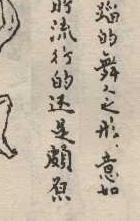 蹈的舞之形、意如
时流行的还是頗原